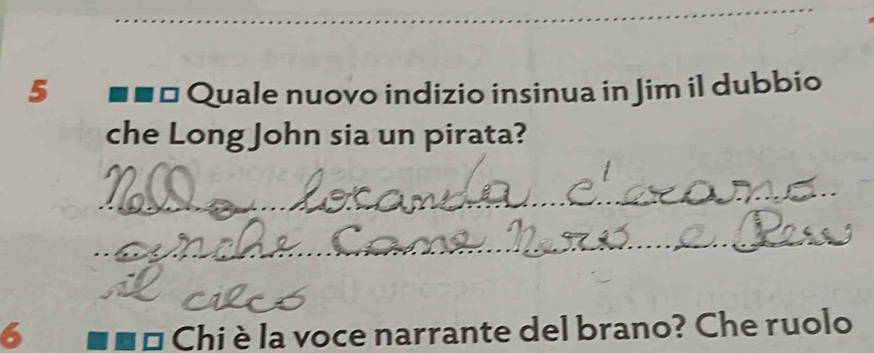 5 Quale nuovo indizio insinua in Jim il dubbio
che Long John sia un pirata?
Nella locanda c'erano
anche Cane Nero e Pew
il cieco
6 Chi è la voce narrante del brano? Che ruolo